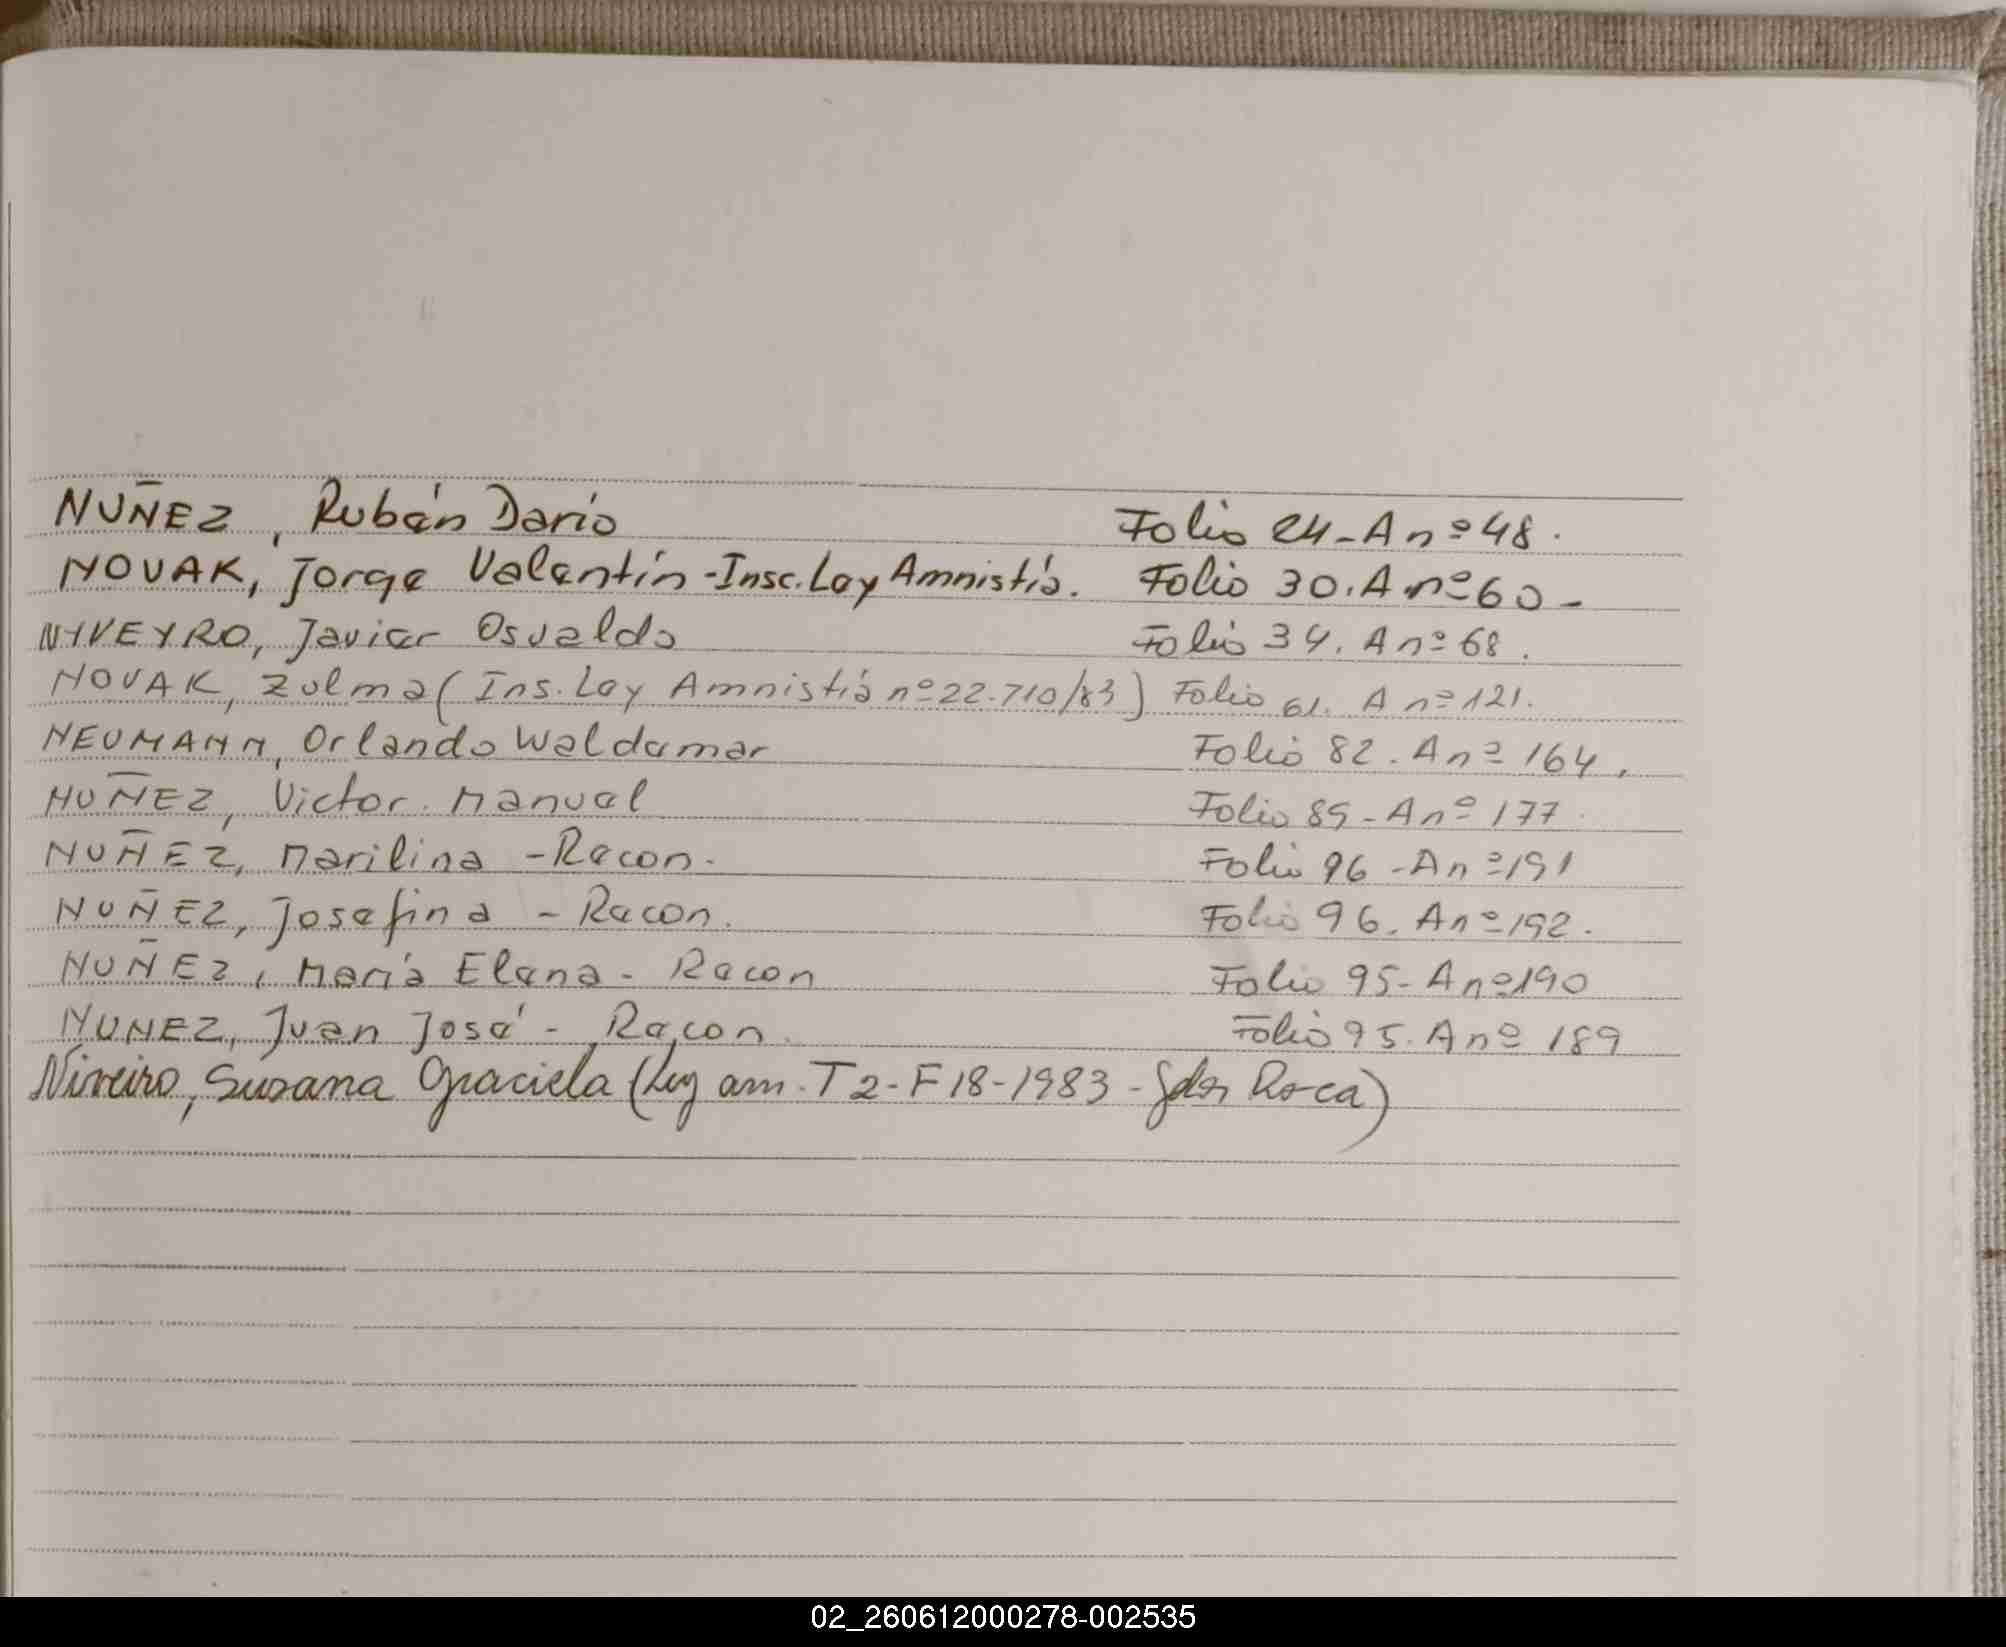 NUÑEZ, Rubén Darío Folio 24-A nº 48.
NOVAK, Jorge Valentín - Insc. Ley Amnistía. Folio 30. A nº 60-
NIVEYRO, Javier Osvaldo Folio 34. A nº 68.
NOVAK, Zulma (Ins. Ley Amnistía nº 22.710/83) Folio 61. A nº 121.
NEUMANN, Orlando Waldemar Folio 82. A nº 164.
NUÑEZ, Victor Manuel Folio 89-A nº 177.
NUÑEZ, Marilina - Recon. Folio 96-A nº 191
NUÑEZ, Josefina - Recon. Folio 96. A nº 192.
NUÑEZ, María Elena - Recon Folio 95-A nº 190
NUNEZ, Juan José - Recon. Folio 95. A nº 189
Niveiro, Susana Graciela (Ley am. T2-F18-1983-Gdor Roca)
02_260612000278-002535